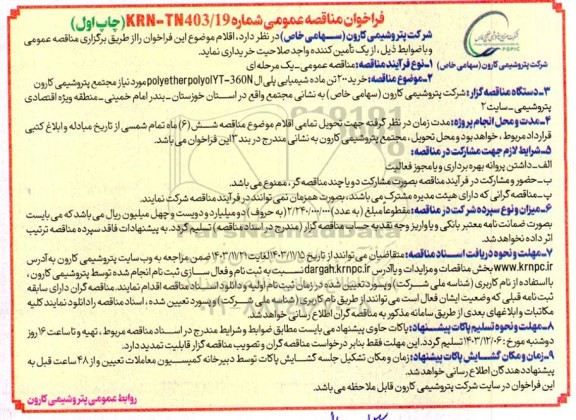 فراخوان مناقصه عمومی شماره KRN-TN403/19 (چاپ اول)
PSPIC
شرکت پتروشیمی کارون (سهامی خاص)
شرکت پتروشیمی کارون (سهامی خاص) در نظر دارد، اقلام موضوع این فراخوان را از طریق برگزاری مناقصه عمومی
و با ضوابط ذیل، از یک تأمین کننده واجد صلاحیت خریداری نماید.
۱-نوع فرآیند مناقصه: مناقصه عمومی-یک مرحله ای
۲-موضوع مناقصه: خرید ۲۰۰ تن ماده شیمیایی پلی ال polyetherpolyolYT-360N مورد نیاز مجتمع پتروشیمی کارون
۳-دستگاه مناقصه گزار: شرکت پتروشیمی کارون (سهامی خاص) به نشانی مجتمع واقع در استان خوزستان-بندر امام خمینی-منطقه ویژه اقتصادی
پتروشیمی-سایت ۲
۴-مدت و محل انجام پروژه: مدت زمان در نظر گرفته جهت تحویل تمامی اقلام موضوع مناقصه شش (۶) ماه تمام شمسی از تاریخ مبادله و ابلاغ کتبی
قرارداد مربوط، خواهد بود و محل تحویل، مجتمع پتروشیمی کارون به نشانی مندرج در بند ۳ این فراخوان می باشد.
۵-شرایط لازم جهت مشارکت در مناقصه:
الف-داشتن پروانه بهره برداری و یا مجوز فعالیت
ب-حضور و مشارکت در فرآیند مناقصه بصورت مشارکت دو یا چند مناقصه گر، ممنوع می باشد.
پ-مناقصه گرانی که دارای هیئت مدیره مشترک می باشند، بصورت همزمان نمی توانند در فرآیند مناقصه شرکت نمایند.
۶-میزان و نوع سپرده شرکت در مناقصه: مقطوعاً مبلغ (به عدد) ۲/۲۴۰/۰۰۰/۰۰۰ (به حروف) دو میلیارد و دویست و چهل میلیون ریال می باشد که می بایست
بصورت ضمانت نامه معتبر بانکی و یا واریز وجه نقد به حساب مناقصه گزار (مندرج در اسناد مناقصه) تسلیم گردد. به پیشنهادات فاقد سپرده مناقصه ترتیب
اثر داده نخواهد شد.
۷-مهلت و نحوه دریافت اسناد مناقصه: متقاضیان می توانند از تاریخ ۱۴۰۳/۱۱/۱۵ لغایت ۱۴۰۳/۱۱/۲۱ ضمن مراجعه به وب سایت پتروشیمی کارون به آدرس
www.krnpc.ir بخش مناقصات و مزایدات و یا آدرس dargah.krnpc.ir نسبت به ثبت نام و فعال سازی ثبت نام انجام شده توسط پتروشیمی کارون،
با استفاده از نام کاربری (شناسه ملی شرکت) و پسورد تعیین شده در زمان ثبت نام اولیه و دانلود اسناد مناقصه اقدام نمایند. مناقصه گران دارای سابقه
ثبت نام قبلی که وضعیت ایشان فعال است می توانند از طریق نام کاربری (شناسه ملی شرکت) و پسورد تعیین شده، اسناد مناقصه را دانلود نمایند. کلیه
مکاتبات و ابلاغهای بعدی از طریق سامانه مذکور به مناقصه گران اطلاع رسانی خواهد شد.
۸-مهلت و نحوه تسلیم پاکات پیشنهاد: پاکات حاوی پیشنهاد می بایست مطابق ضوابط و شرایط مندرج در اسناد مناقصه مربوط، تهیه و تا ساعت ۱۶ روز
دوشنبه مورخ: ۱۴۰۳/۱۲/۰۶ تسلیم گردد. این مهلت فقط بنابر درخواست مناقصه گران و تصویب مناقصه گزار قابلیت تمدید دارد.
۹-زمان و مکان گشایش پاکات پیشنهاد: زمان و مکان تشکیل جلسه گشایش پاکات توسط دبیرخانه کمیسیون معاملات تعیین و از ۴۸ ساعت قبل به
پیشنهاددهندگان اطلاع رسانی خواهد شد.
این فراخوان در سایت شرکت پتروشیمی کارون قابل ملاحظه می باشد.
روابط عمومی پتروشیمی کارون